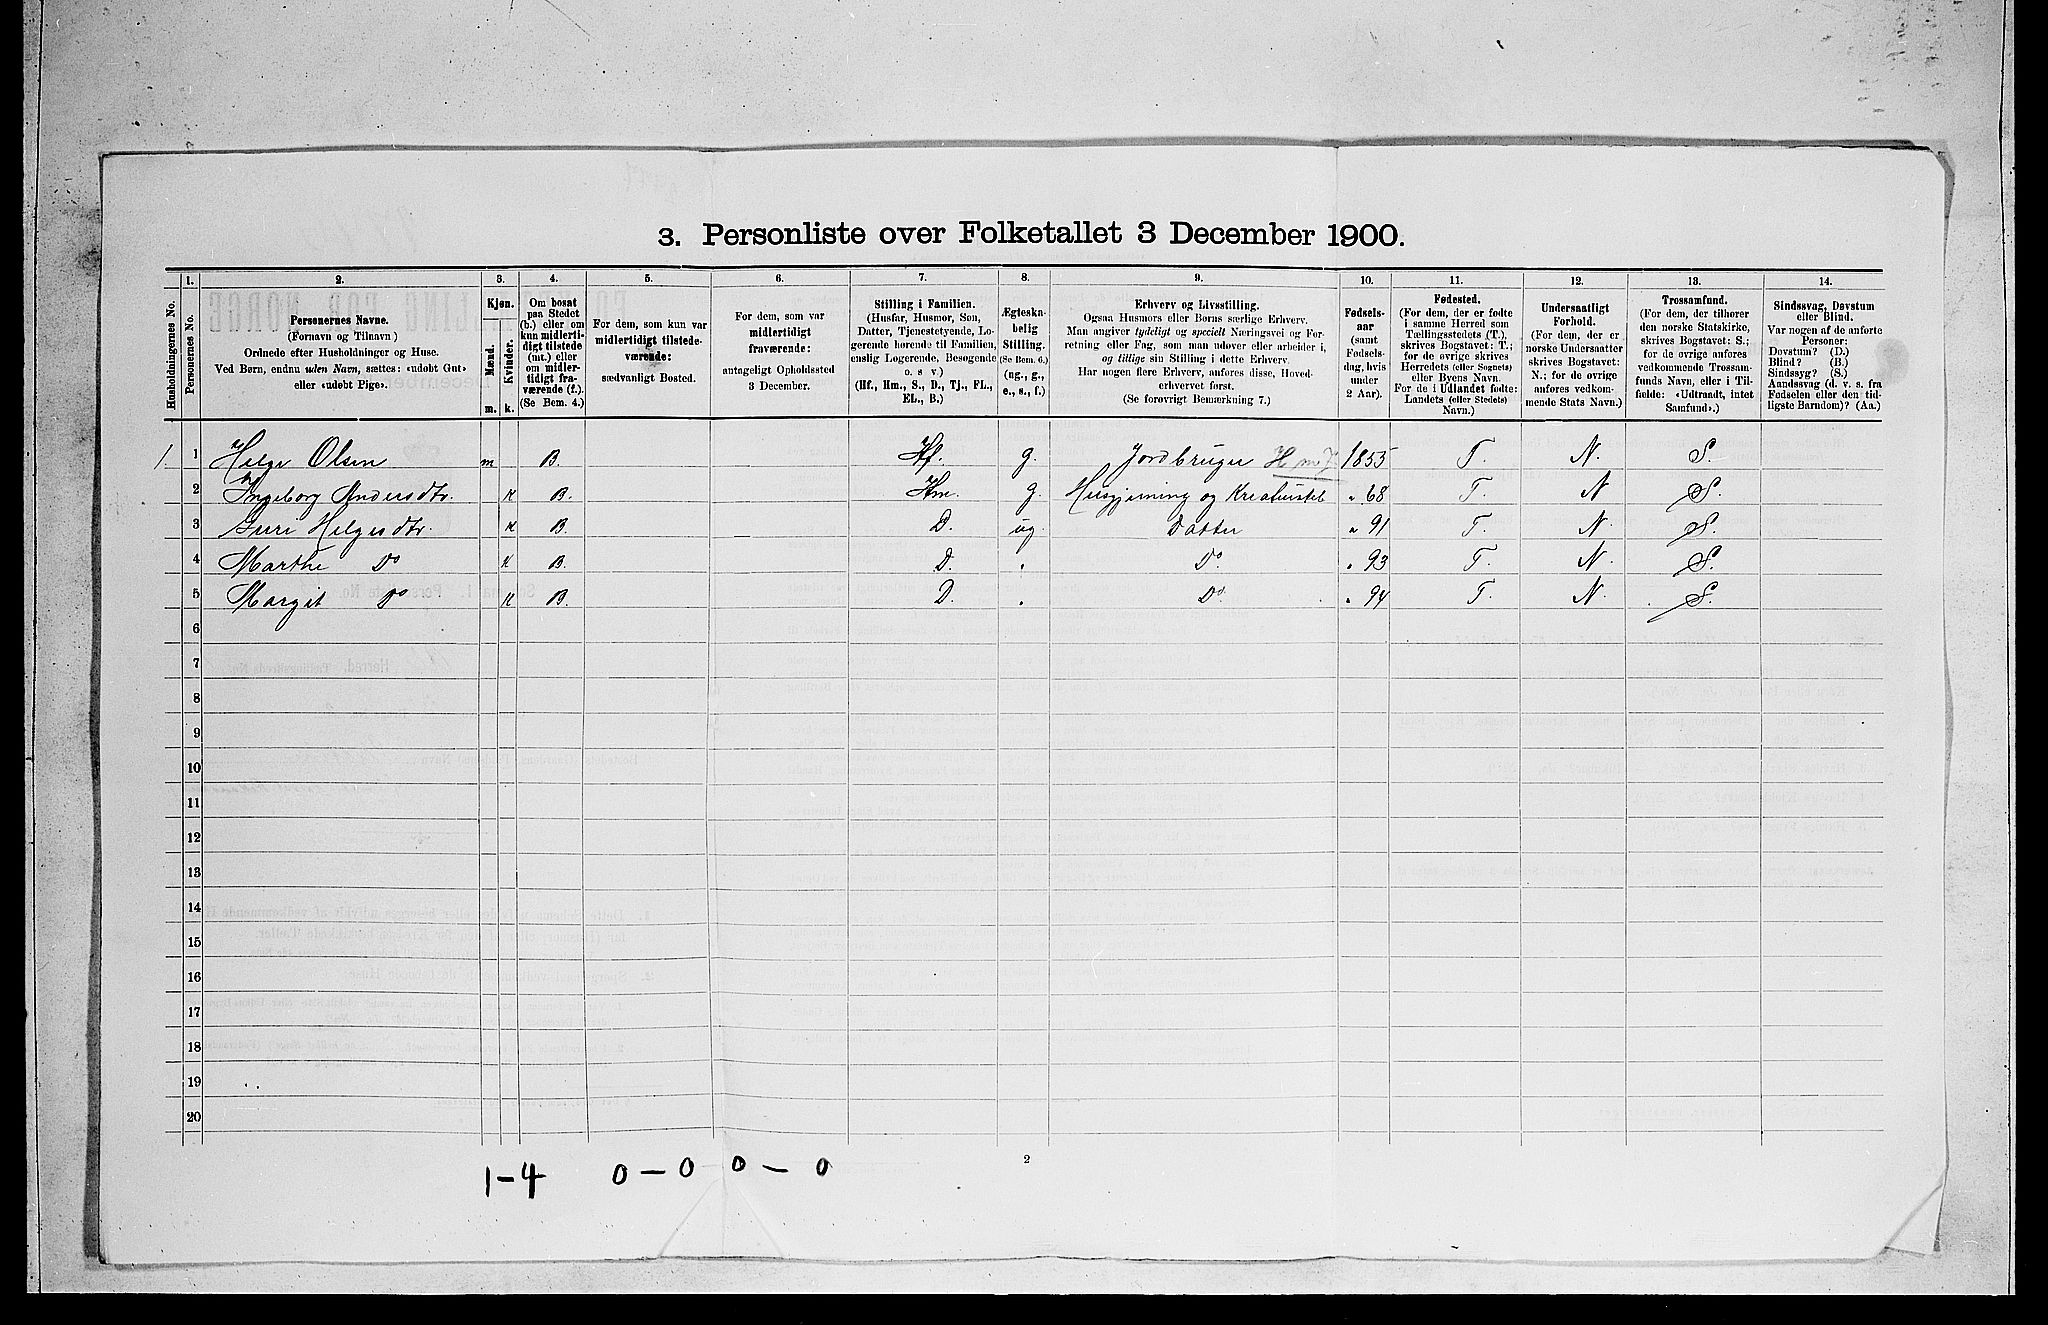 3. Personliste over Folketallet 3 December 1900.
Husholdningernes No.
1.
Personernes No.
2.
Personernes Navne.
(Fornavn og Tilnavn)
Ordnede efter Husholdninger og Huse.
Ved Børn, endnu uden Navn, sættes: «udøbt Gut»
eller «udøbt Pige».
3.
Kjøn.
Mænd.
Kvinder.
m. k.
4.
Om bosat
paa Stedet
(b.) eller om
kun midlerti-
digt tilstede
(mt.) eller
om midler-
tidigt fra-
værende (f.).
(Se Bem. 4.)
5.
For dem, som kun var
midlertidigt tilstede-
værende:
sædvanligt Bosted.
6.
For dem, som var
midlertidigt
fraværende:
antageligt Opholdssted
3 December.
7.
Stilling i Familien.
(Husfar, Husmor, Søn,
Datter, Tjenestetyende, Lo-
gerende hørende til Familien,
enslig Logerende, Besøgende
o. s v.)
(Hf., Hm., S., D., Tj., FL.,
EL., B.)
8.
Ægteska-
belig
Stilling.
(Se Bem. 6.)
(ug., g.,
e., s., f.)
9.
Erhverv og Livsstilling.
Ogsaa Husmors eller Børns særlige Erhverv.
Man angiver tydeligt og specielt Næringsvei og For-
retning eller Fag, som man udøver eller arbeider i,
og tillige sin Stilling i dette Erhverv.
Har nogen flere Erhverv, anføres disse, Hoved-
erhvervet først.
(Se forøvrigt Bemærkning 7.)
10.
Fødsels-
aar
(samt
Fødsels-
dag, hvis
under
2 Aar).
11.
Fødested.
(For dem, der er fødte
i samme Herred som
Tællingsstedets (T.),
skrives Bogstavet: T.;
for de øvrige skrives
Herredets (eller Sognets)
eller Byens Navn.
For de i Udlandet fødte:
Landets (eller Stedets)
Navn.)
12.
Undersaatligt
Forhold.
(For dem, der er
norske Undersaatter
skrives Bogstavet:
N.; for de øvrige
anføres vedkom-
mende Stats Navn.)
13.
Trossamfund.
(For dem, der tilhører
den norske Statskirke,
skrives Bogstavet: S.;
for de øvrige anføres
vedkommende Trossam-
funds Navn, eller i Til-
fælde: «Udtraadt, intet
Samfund».)
14.
Sindssvag, Døvstum
eller Blind.
Var nogen af de anførte
Personer:
Døvstum? (D.)
Blind? (B.)
Sindssyg? (S.)
Aandssvag (d. v. s. fra
Fødselen eller den tid-
ligste Barndom)? (Aa.)
1. 1 Helge Olsen m B. Hf. g. Jordbruger 1855 T. N. S.
2 Ingeborg Andersdtr. K B. Hm. g. Husgjerning og Kreaturstel " 68 T. N S.
3 Guri Helgesdtr. K B. D. ug. Datter " 91 T. N. S.
4 Marthe Do K B. D. " Do. " 93 T. N. S.
5 Margit Do K B. D. " Do. " 94 T. N. S.
6
7
8
9
10
11
12
13
14
15
16
17
18
19
20
1-4 0-0 0-0
2